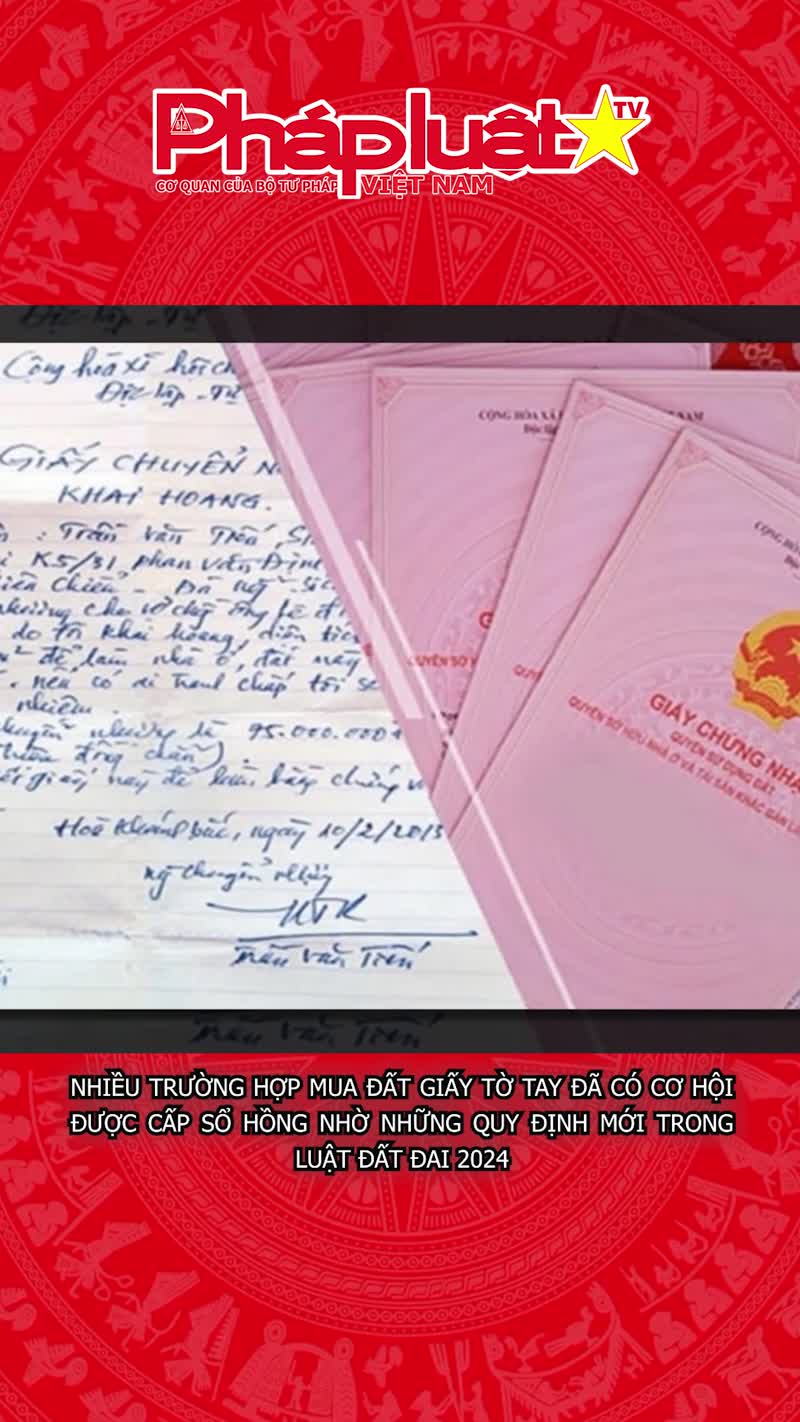 Phápluật TV
CƠ QUAN CỦA BỘ TƯ PHÁP VIỆT NAM
Độc lập - Tự
Cộng hòa xã hội ch
Độc lập - Tự
GIẤY CHUYỂN N
KHAI HOANG.
: Trần Văn Tiến, S
K5/31, phan văn Định
Liên Chiểu - Đà nẵng
nhượng cho vợ chồng ông
do tôi khai hoang, diện tích
để làm nhà ở, đất này
nếu có gì tranh chấp tôi sẽ
nhiệm.
chuyển nhượng là 95.000.000
đồng chẵn)
giấy này để làm bằng chứng
Hoà Khánh bắc, ngày 10/2/2015
ng chuyển nhượng
Trần Văn Tiến
CỘNG HÒA XÃ
NAM
Độc lập
QUYỀN SỞ H
GIẤY CHỨNG NHẬ
QUYỀN SỬ DỤNG ĐẤT
QUYỀN SỞ HỮU NHÀ Ở VÀ TÀI SẢN KHÁC GẮN LI
NHIỀU TRƯỜNG HỢP MUA ĐẤT GIẤY TỜ TAY ĐÃ CÓ CƠ HỘI
ĐƯỢC CẤP SỔ HỒNG NHỜ NHỮNG QUY ĐỊNH MỚI TRONG
LUẬT ĐẤT ĐAI 2024